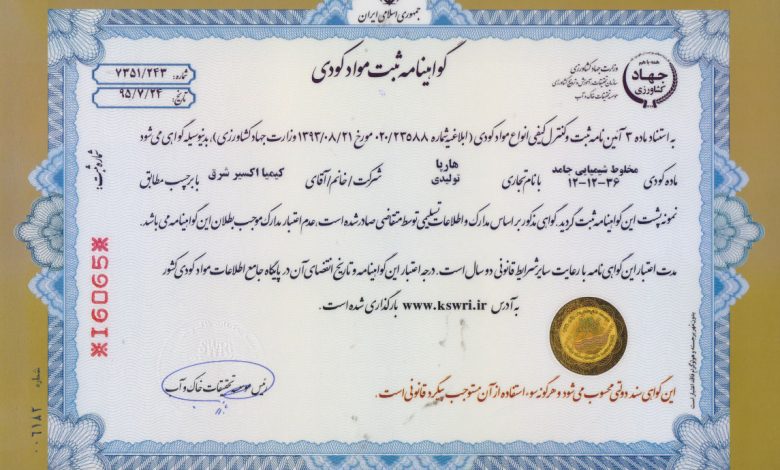 جمهوری اسلامی ایران
گواهینامه ثبت مواد کودی
شماره: ۷۳۵۱/۲۴۳
تاریخ: ۹۵/۷/۲۴
همه با هم
جهاد
کشاورزی
وزارت جهاد کشاورزی
سازمان تحقیقات، آموزش و ترویج کشاورزی
موسسه تحقیقات خاک و آب
به استناد ماده ۳ آئین نامه ثبت و کنترل کیفی انواع مواد کودی (ابلاغیه شماره ۰۲۰/۲۳۵۸۸ مورخ ۱۳۹۳/۰۸/۲۱ وزارت جهاد کشاورزی)، بدینوسیله گواهی می شود
ماده کودی مخلوط شیمیایی جامد ۱۲-۱۲-۳۶ با نام تجاری هارپا تولیدی شرکت/خانم/آقای کیمیا اکسیر شرق با برچسب مطابق
نمونه پشت این گواهینامه ثبت گردید. گواهی مذکور بر اساس مدارک و اطلاعات تسلیمی توسط متقاضی صادر شده است، عدم اعتبار مدارک موجب بطلان این گواهینامه می باشد.
مدت اعتبار این گواهی نامه با رعایت سایر شرایط قانونی دو سال است. درجه اعتبار این گواهینامه و تاریخ انقضای آن در پایگاه جامع اطلاعات مواد کودی کشور
به آدرس www.kswri.ir بارگذاری شده است.
رئیس موسسه تحقیقات خاک و آب
این گواهی سند دولتی محسوب می شود و هرگونه سوء استفاده از آن مستوجب پیگرد قانونی است.
شماره ثبت:
*I6065*
شماره
۰۰۶۱۸۲
بدون مهر برجسته و هولوگرام فاقد اعتبار است